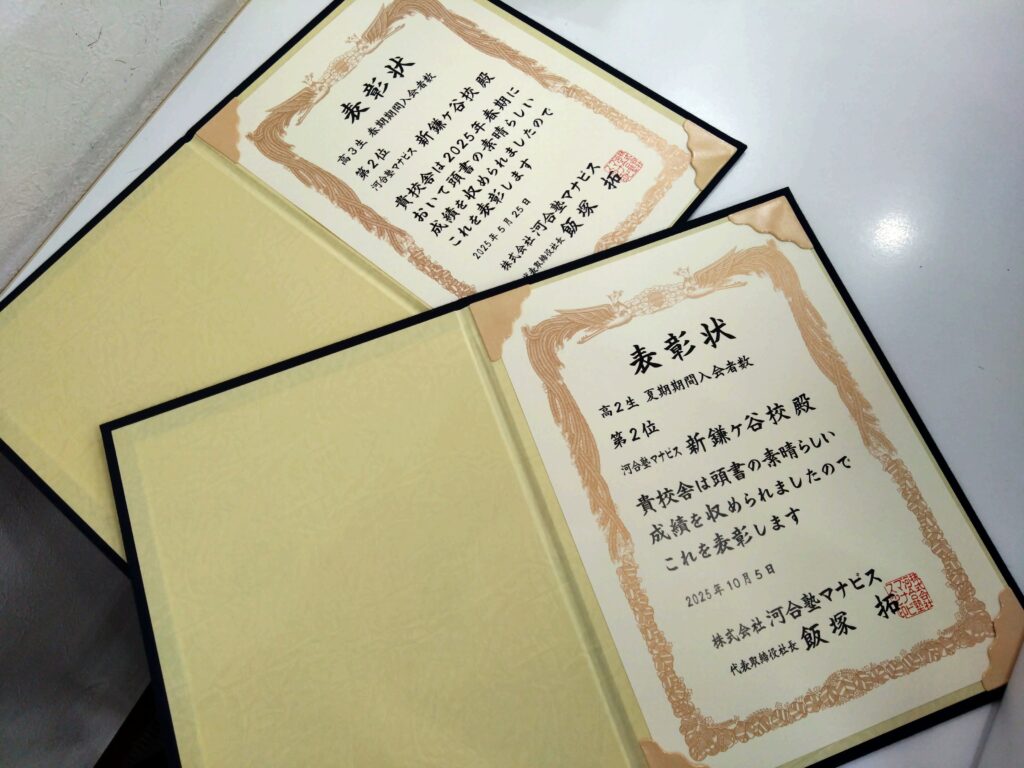 表彰状
高3生 春期期間入会者数
第2位
河合塾マナビス 新鎌ヶ谷校 殿
貴校舎は2025年春期に
おいて頭書の素晴らしい
成績を収められましたので
これを表彰します
2025年5月25日
株式会社河合塾マナビス
代表取締役社長 飯塚 拓
表彰状
高2生 夏期期間入会者数
第2位
河合塾マナビス 新鎌ヶ谷校 殿
貴校舎は頭書の素晴らしい
成績を収められましたので
これを表彰します
2025年10月5日
株式会社河合塾マナビス
代表取締役社長 飯塚 拓